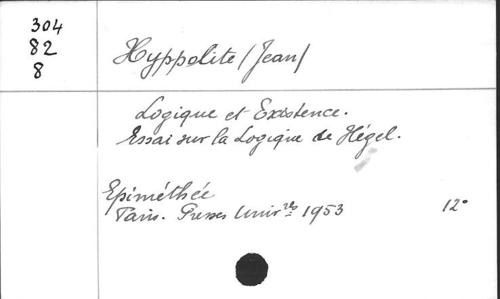 304
82
8
Hyppolite/Jean/
Logique et Existence.
Essai sur la Logique de Hégel.
Epiméthée
Paris. Presses Univ.res 1953 12°